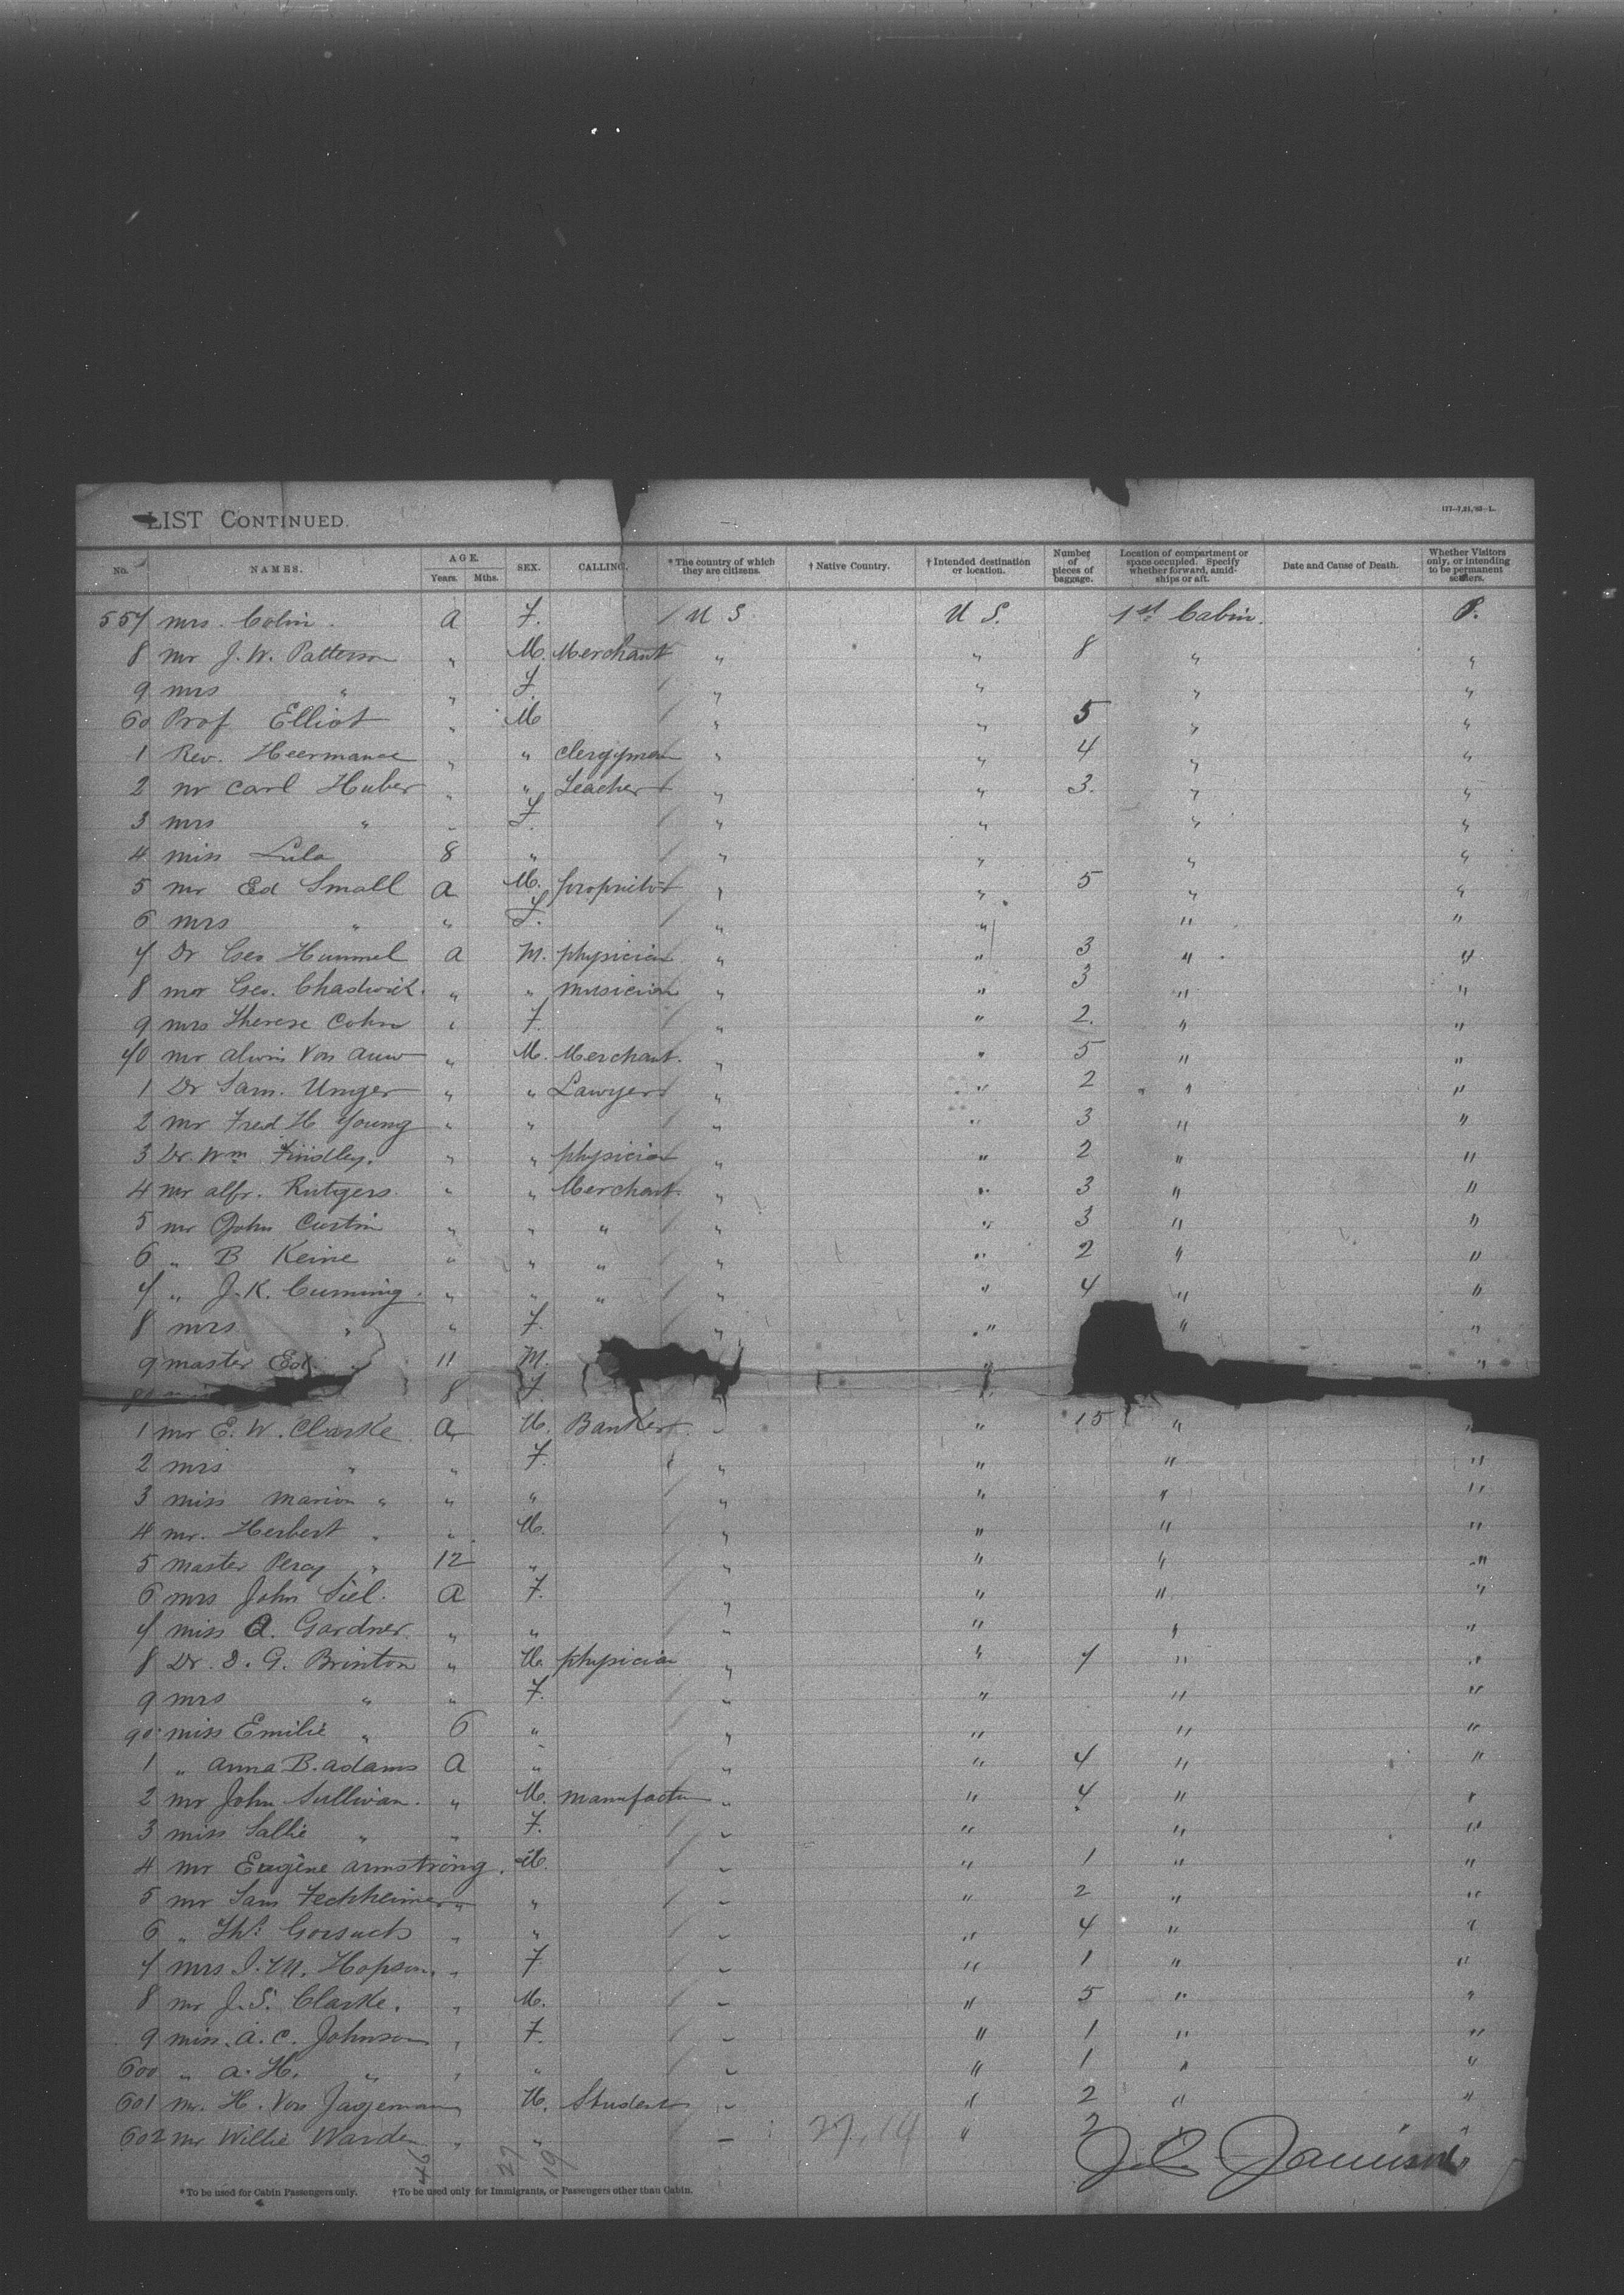 LIST CONTINUED.
No. NAMES. AGE. Years. Mths. SEX. CALLING. *The country of which they are citizens. †Native Country. †Intended destination or location. Number of pieces of baggage. Location of compartment or space occupied. Specify whether forward, amidships or aft. Date and Cause of Death. Whether Visitors only, or intending to be permanent settlers.
557 Mrs. Colin. a F. / U S U S. 1st Cabin. P.
8 Mr J. W. Patterson " M. Merchant / " " 8 " "
9 Mrs " " F. / " " " "
60 Prof Elliot " M / " " 5 " "
1 Rev. Heermance " " Clergyman " " 4 " "
2 Mr Carl Huber " " Teacher / " " 3. " "
3 Mrs " " F. / " " " "
4 Miss Lula 8 " / " " " "
5 Mr Ed Small a M. proprietor / " " 5 " "
6 Mrs " " F. / " " " "
7 Dr Geo Hummel a M. physician " " 3 " "
8 Mr Geo. Chadwick. " " Musician " " 3 " "
9 Mrs Therese Cohn " F. / " " 2. " "
70 Mr Alwin Von Auw " M. Merchant. " " 5 " "
1 Dr Sam. Unger " " Lawyer / " " 2 " "
2 Mr Fred H Young " " / " " 3 " "
3 Dr. Wm Findley. " " physician " " 2 " "
4 Mr Alfr. Rutgers. " " Merchant. " " 3 " "
5 Mr John Curtin " " " / " " 3 " "
6 " B Keine " " " / " " 2 " "
7 " J. K. Cumming. " " " / " " 4 " "
8 Mrs " " F. / " " " "
9 Master Ed. " 11 M. " "
80 8 F. "
1 Mr E. W. Clarke a M. Banker " " 15 " "
2 Mrs " " F. / " " " "
3 Miss Marion " " " / " " " "
4 Mr. Herbert " " M. / " " " "
5 Master Percy " 12 " / " " " "
6 Mrs John Siel. a F. / " " " "
7 Miss A. Gardner " " / " " " "
8 Dr. D. G. Brinton " M. physician " " 7 " "
9 Mrs " " F. / " " " "
90 Miss Emilie " 6 " / " " " "
1 " Anna B. Adams a " / " " 4 " "
2 Mr John Sullivan. " M. Manufactu " " 4 " "
3 Miss Sallie " " F. / " " " "
4 Mr Eugene Armstrong. M. / " " 1 " "
5 Mr Sam Fechheimer " " / " " 2 " "
6 " Ths. Gorsuch " " / " " 4 " "
7 Mrs I. M. Hopson. " F / " " 1 " "
8 Mr J. S. Clarke. " M. / " " 5 " "
9 Miss. A. C. Johnson " F. / " " 1 " "
600 " A. H. " " " / " " 1 " "
601 Mr. H. Von Jagemann " M. Student " " 2 " "
602 Mr Willie Warden " " " 27,19 " 2 "
46 27 19
*To be used for Cabin Passengers only. †To be used only for Immigrants, or Passengers other than Cabin.